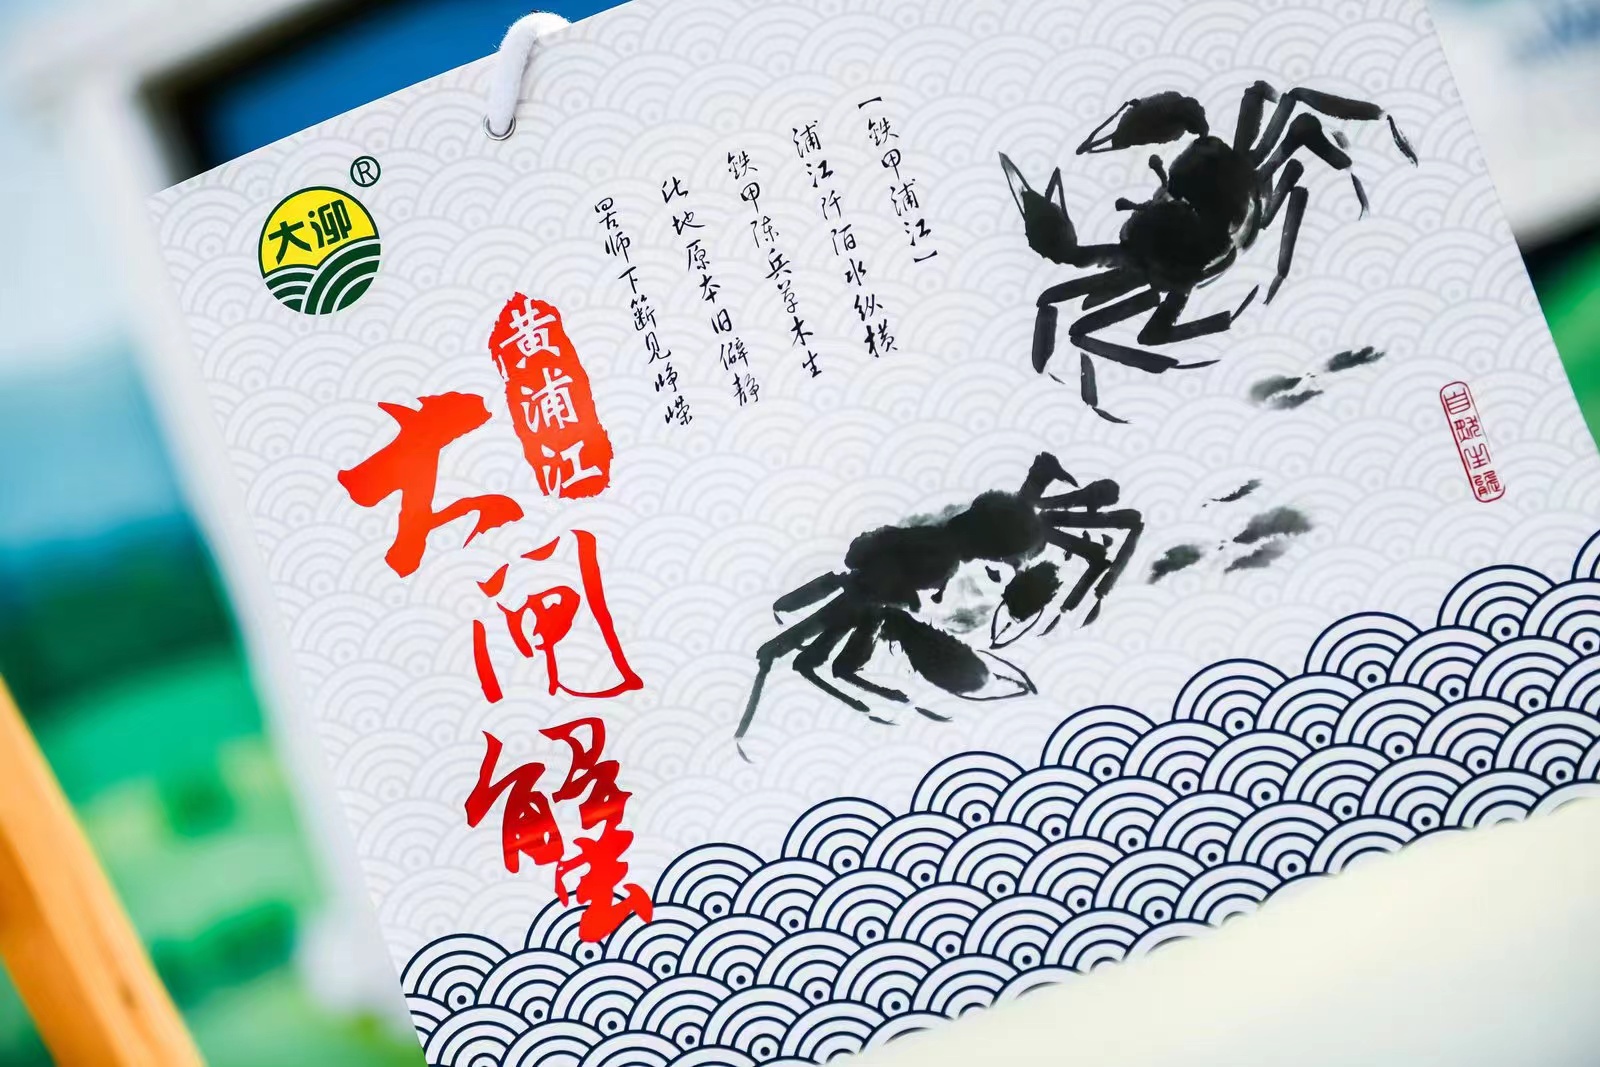 大泖®
【鉄甲浦江】
浦江阡陌水纵横
鉄甲陈兵草木生
此地原本旧僻静
罟师下簖见峥嵘
黄浦江
大闸蟹